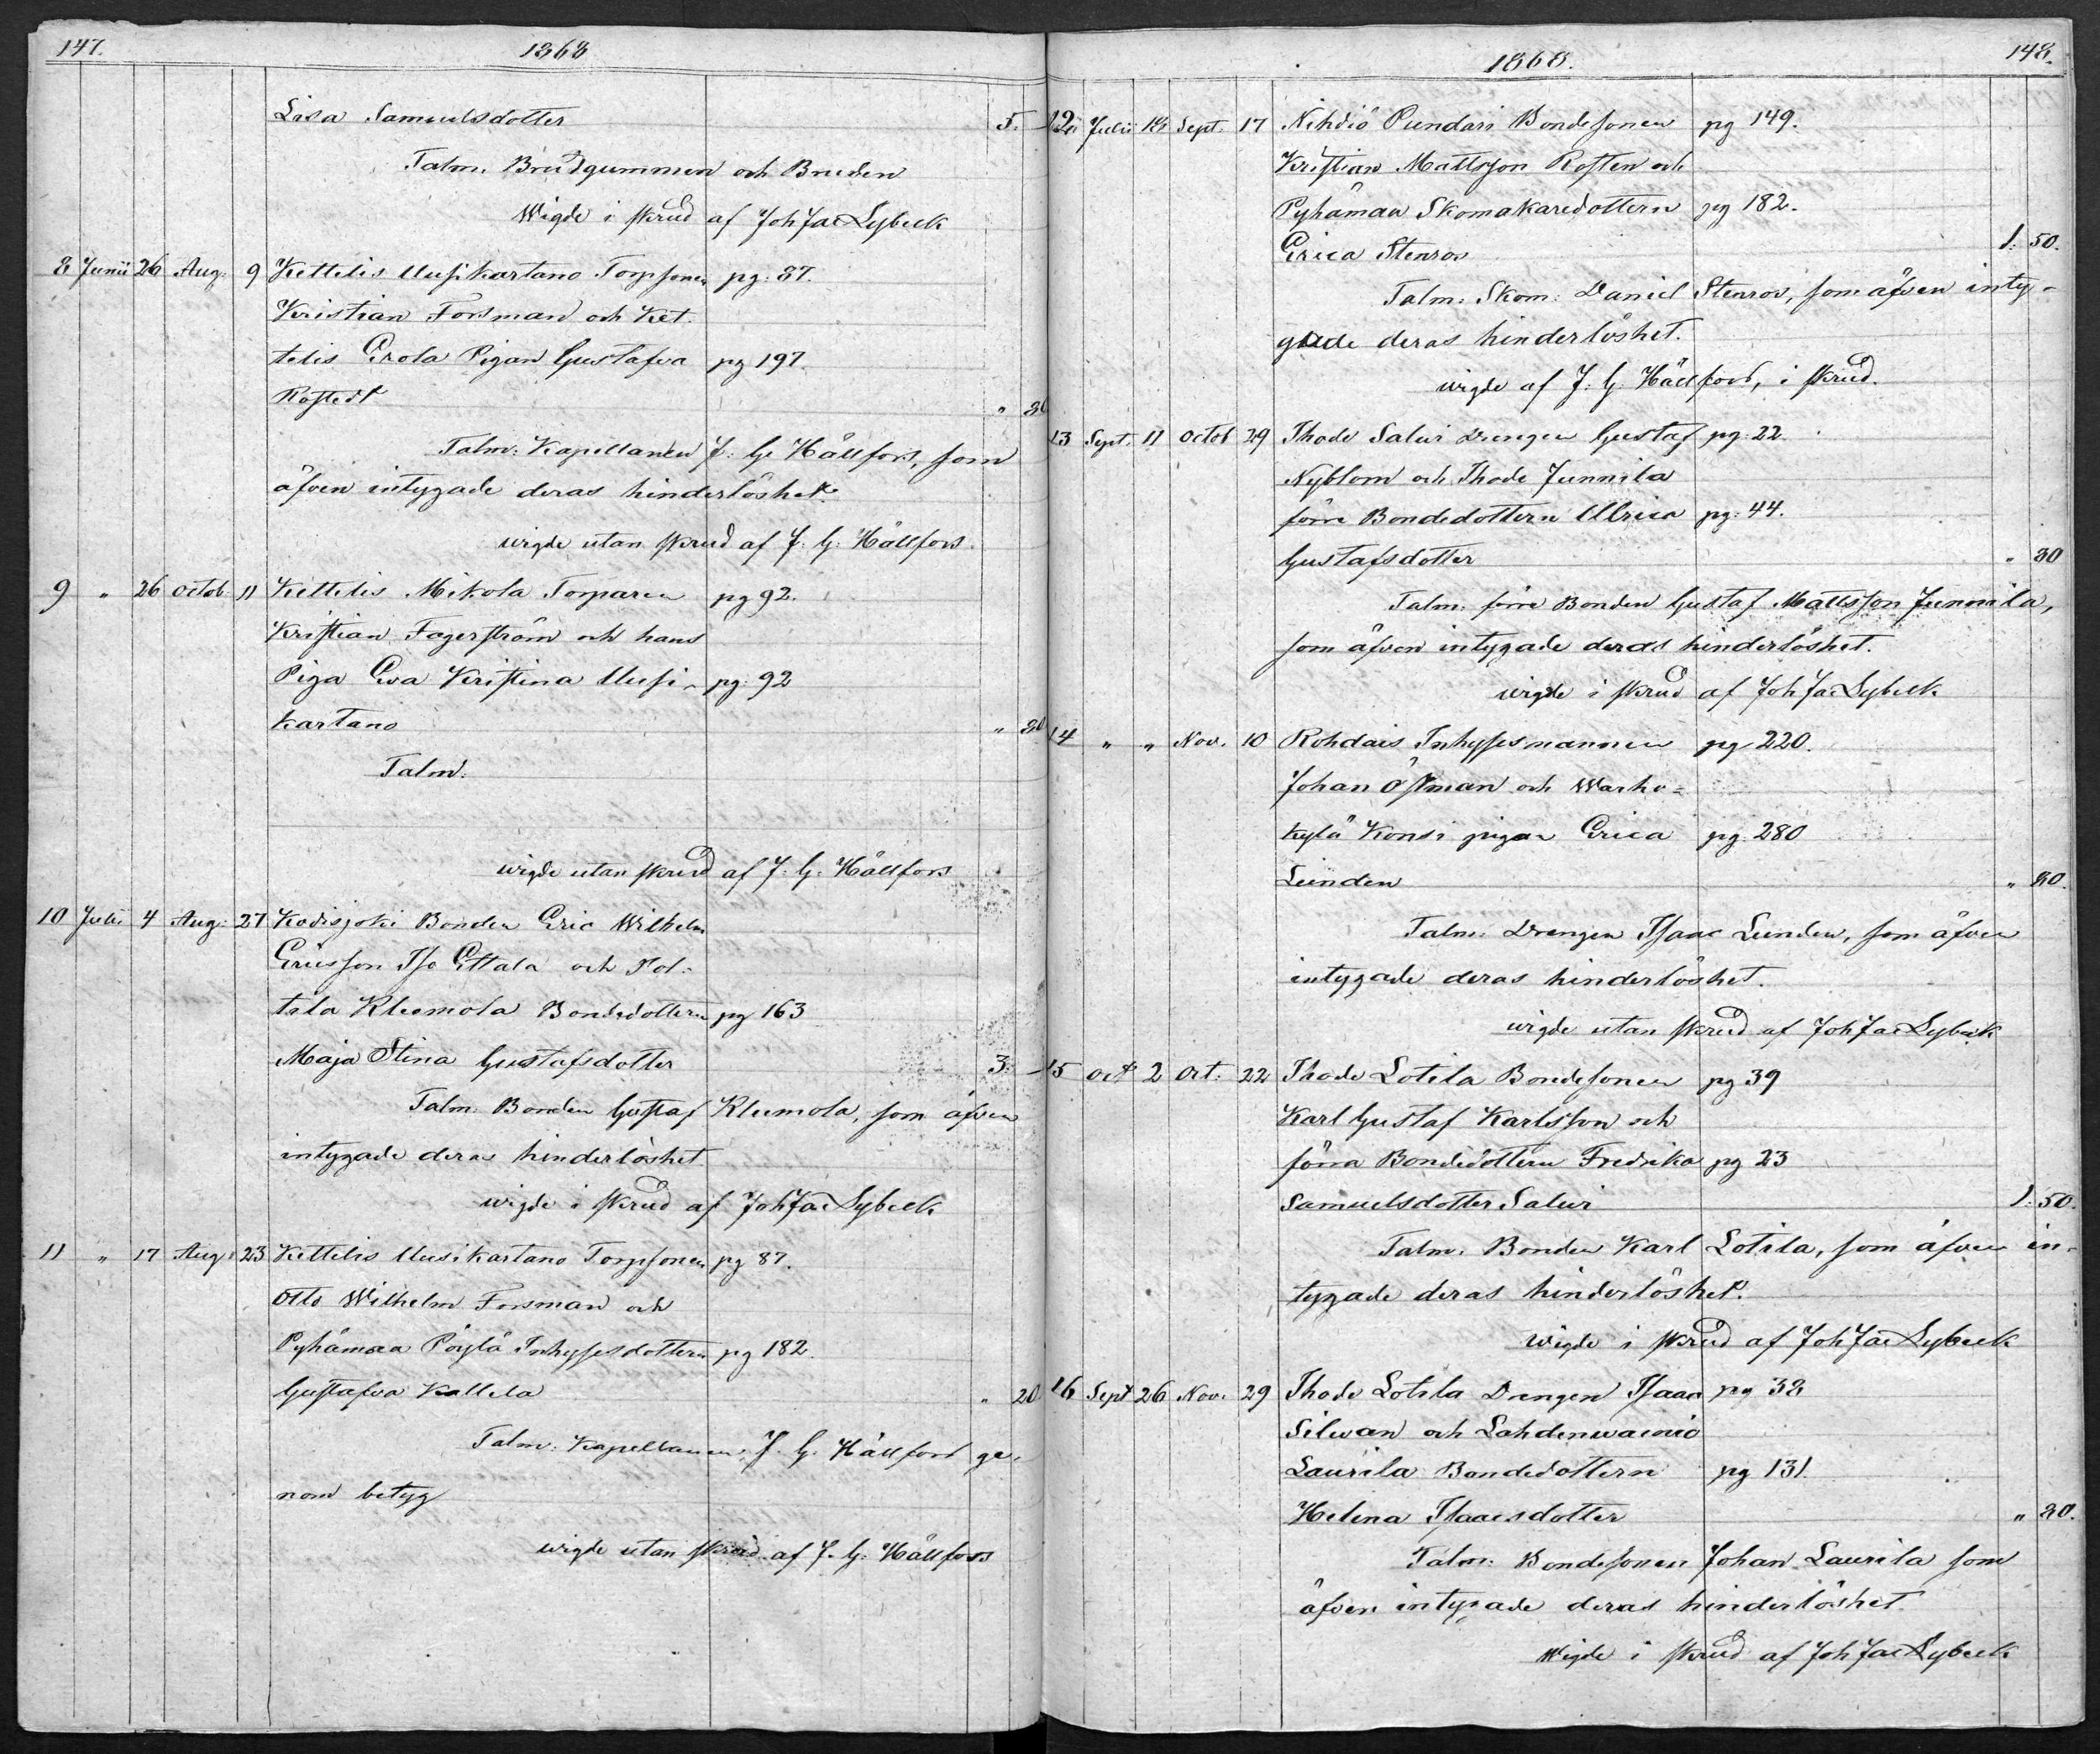 147. 1868
Lisa Samuelsdotter 5. -
Talm. Brudgummen och Bruden
Wigde i skrud af Joh Jac Lybeck
8 Junii 26 Aug. 9 Kettelis Uusikartano Torpsonen pg. 87.
Kristian Forsman och Ket-
telis Erola Pigan Gustafva pg 197.
Rostedt "
Talm: Kapellanen J. G. Hällfors, som
äfven intygade deras hinderlöshet.
wigde utan skrud af J. G. Hällfors.
9 " 26 Octob. 11 Kettelis Mikola Torparen pg 92.
Kristian Fagerström och hans
Piga Eva Kristina Uusi- pg: 92
kartano "
Talm:
wigde utan skrud af J. G. Hällfors
10 Julii 4 Aug: 27 Kodisjoki Bonden Eric Wilhelm
Ericsson Iso Ettala och Pol-
tila Kleemola Bondedottern pg 163
Maja Stina Gustafsdotter 3. -
Talm: Bonden Gustaf Kleemola, som äfven
intygade deras hinderlöshet
wigde i skrud af Joh Jac Lybeck
11 " 17 Aug: 23 Kettelis Uusikartano Torpsonen pg 87.
Otto Wilhelm Forsman och
Pyhämaa Pöylä Inhysesdottern pg 182.
Gustafva Kallela " 20
Talm: Kapellanen J. G. Hällfors ge-
nom betyg
wigde utan skrud af J. G. Hällfors
1868. 148.
12 Julii 18 Sept. 17 Nihdiö Pundari Bondesonen pg 149.
Kristian Mattsson Rosten och
Pyhämaa Skomakaredottern pg 182.
Erica Stenros 1. 50.
Talm: Skom: Daniel Stenros, som äfven inty-
gade deras hinderlöshet.
wigde af J. G. Hällfors, i skrud.
13 Sept. 11 Octob 29 Thode Salwi Drengen Gustaf pg. 22.
Nyblom och Thode Junnila
förre Bondedottern Ulrica pg: 44.
Gustafsdotter " 80
Talm: förre Bonden Gustaf Mattsson Junnila,
som äfven intygade deras hinderlöshet.
wigde i skrud af Joh Jac Lybeck
14 " " Nov. 10 Rohdais Inhysesmannen pg 220.
Johan Östman och Warho-
kylä Konsi pigan Erica pg. 280
Lunden " 80.
Talm: Drengen Isaac Lunden, som äfven
intygade deras hinderlöshet.
wigde utan skrud af Joh Jac Lybeck
15 Oct 2 Oct. 22 Thode Lotila Bondesonen pg 39
Karl Gustaf Karlsson och
förra Bondedottern Fredrika pg 23
Samuelsdotter Salwi 1. 50.
Talm: Bonden Karl Lotila, som äfven in-
tygade deras hinderlöshet.
wigde i skrud af Joh Jac Lybeck
16 Sept 26 Nov. 29 Thode Lotila Drengen Isaac pg 38
Silwan och Lahdenwainio
Laurila Bondedottern pg 131.
Helena Isaacsdotter " 80.
Talm: Bondesonen Johan Laurila som
äfven intygade deras hinderlöshet
Wigde i skrud af Joh Jac Lybeck